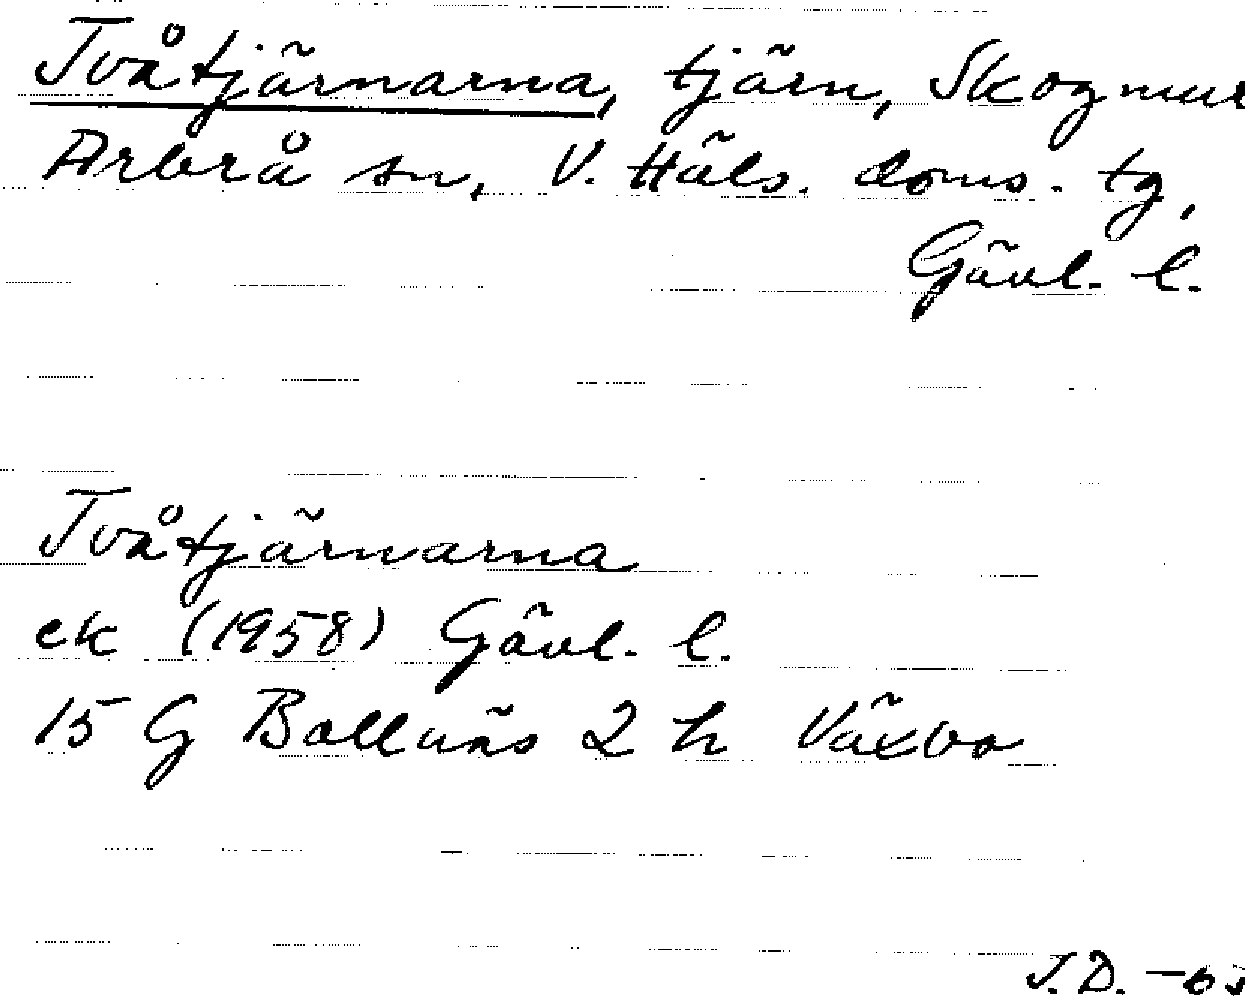 Tvåtjärnarna, tjärn, Skogmur
Arbrå sn, V. Häls. doms. tg,
Gävl. l.
Tvåtjärnarna
ek (1958) Gävl. l.
15 G Bollnäs 2 h Växbo
J.D. -63